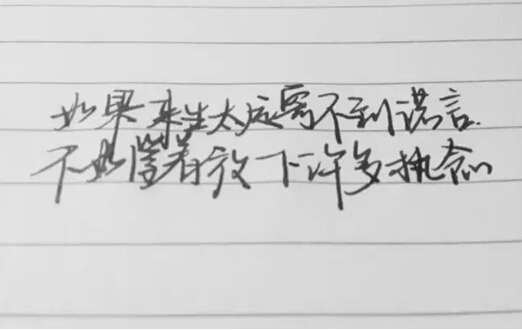 如果来生太远寄不到诺言.
不如学着放下许多执念